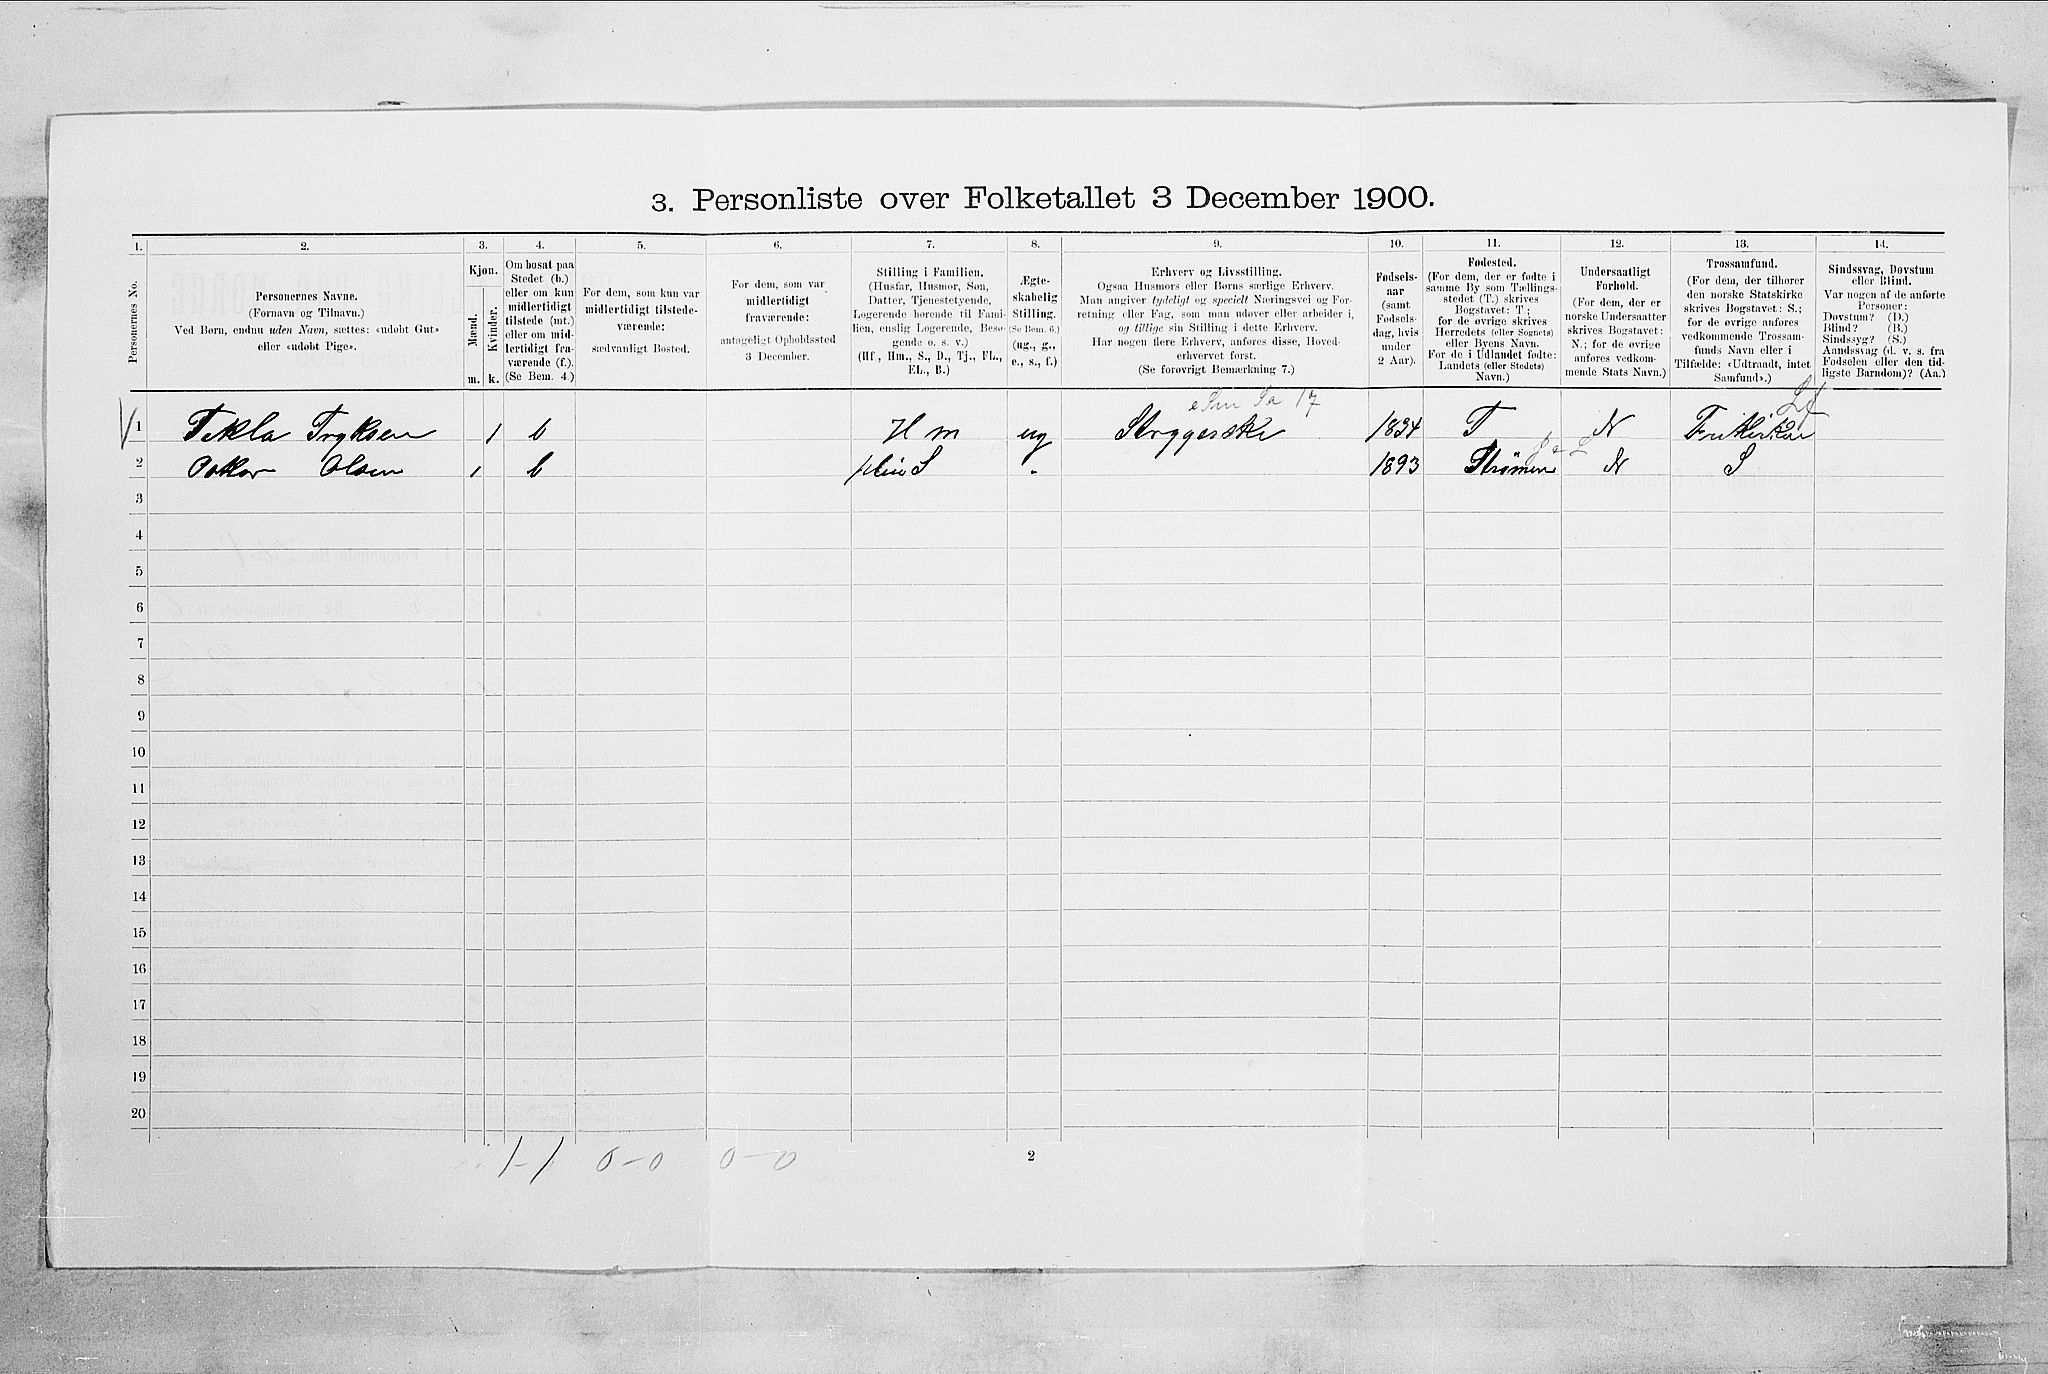 3. Personliste over Folketallet 3 December 1900.
1. 2. 3. 4. 5. 6. 7. 8. 9. 10. 11. 12. 13. 14.
Personernes No.
Personernes Navne.
(Fornavn og Tilnavn.)
Ved Børn, endnu uden Navn, sættes: «udøbt Gut»
eller «udøbt Pige».
Kjøn.
Mænd.
Kvinder.
m. k.
Om bosat paa
Stedet (b.)
eller om kun
midlertidigt
tilstede (mt.)
eller om mid-
lertidigt fra-
værende (f.).
(Se Bem. 4.)
For dem, som kun var
midlertidigt tilstede-
værende:
sædvanligt Bosted.
For dem, som var
midlertidigt
fraværende:
antageligt Opholdssted
3 December.
Stilling i Familien.
(Husfar, Husmor, Søn,
Datter, Tjenestetyende,
Logerende hørende til Fami-
lien, enslig Logerende, Besø-
gende o. s. v.)
(Hf., Hm., S., D., Tj., FL.,
EL., B.)
Ægte-
skabelig
Stilling.
(Se Bem. 6.)
(ug., g.,
e., s., f.)
Erhverv og Livsstilling.
Ogsaa Husmors eller Børns særlige Erhverv.
Man angiver tydeligt og specielt Næringsvei og For-
retning eller Fag, som man udøver eller arbeider i,
og tillige sin Stilling i dette Erhverv.
Har nogen flere Erhverv, anføres disse, Hoved-
erhvervet først.
(Se forøvrigt Bemærkning 7.)
Fødsels-
aar
(samt
Fødsels-
dag, hvis
under
2 Aar).
Fødested.
(For dem, der er fødte i
samme By som Tællings-
stedet (T.) skrives
Bogstavet: T;
for de øvrige skrives
Herredets (eller Sognets)
eller Byens Navn.
For de i Udlandet fødte:
Landets (eller Stedets)
Navn.)
Undersaatligt
Forhold.
(For dem, der er
norske Undersaatter
skrives Bogstavet:
N.; for de øvrige
anføres vedkom-
mende Stats Navn.)
Trossamfund.
(For dem, der tilhører
den norske Statskirke
skrives Bogstavet: S.;
for de øvrige anføres
vedkommende Trossam-
funds Navn eller i
Tilfælde: «Udtraadt, intet
Samfund».)
Sindssvag, Døvstum
eller Blind.
Var nogen af de anførte
Personer:
Døvstum? (D.)
Blind? (B.)
Sindssyg? (S.)
Aandssvag (d. v. s. fra
Fødselen eller den tid-
ligste Barndom)? (Aa.)
17
1 Tekla Tryksen 1 b Hm ug Strygerske 1834 T N Frikirken
2 Oskar Olsen 1 b S " 1893 Strømm N S
3
4
5
6
7
8
9
10
11
12
13
14
15
16
17
18
19
20
1-1 0-0 0-0 2